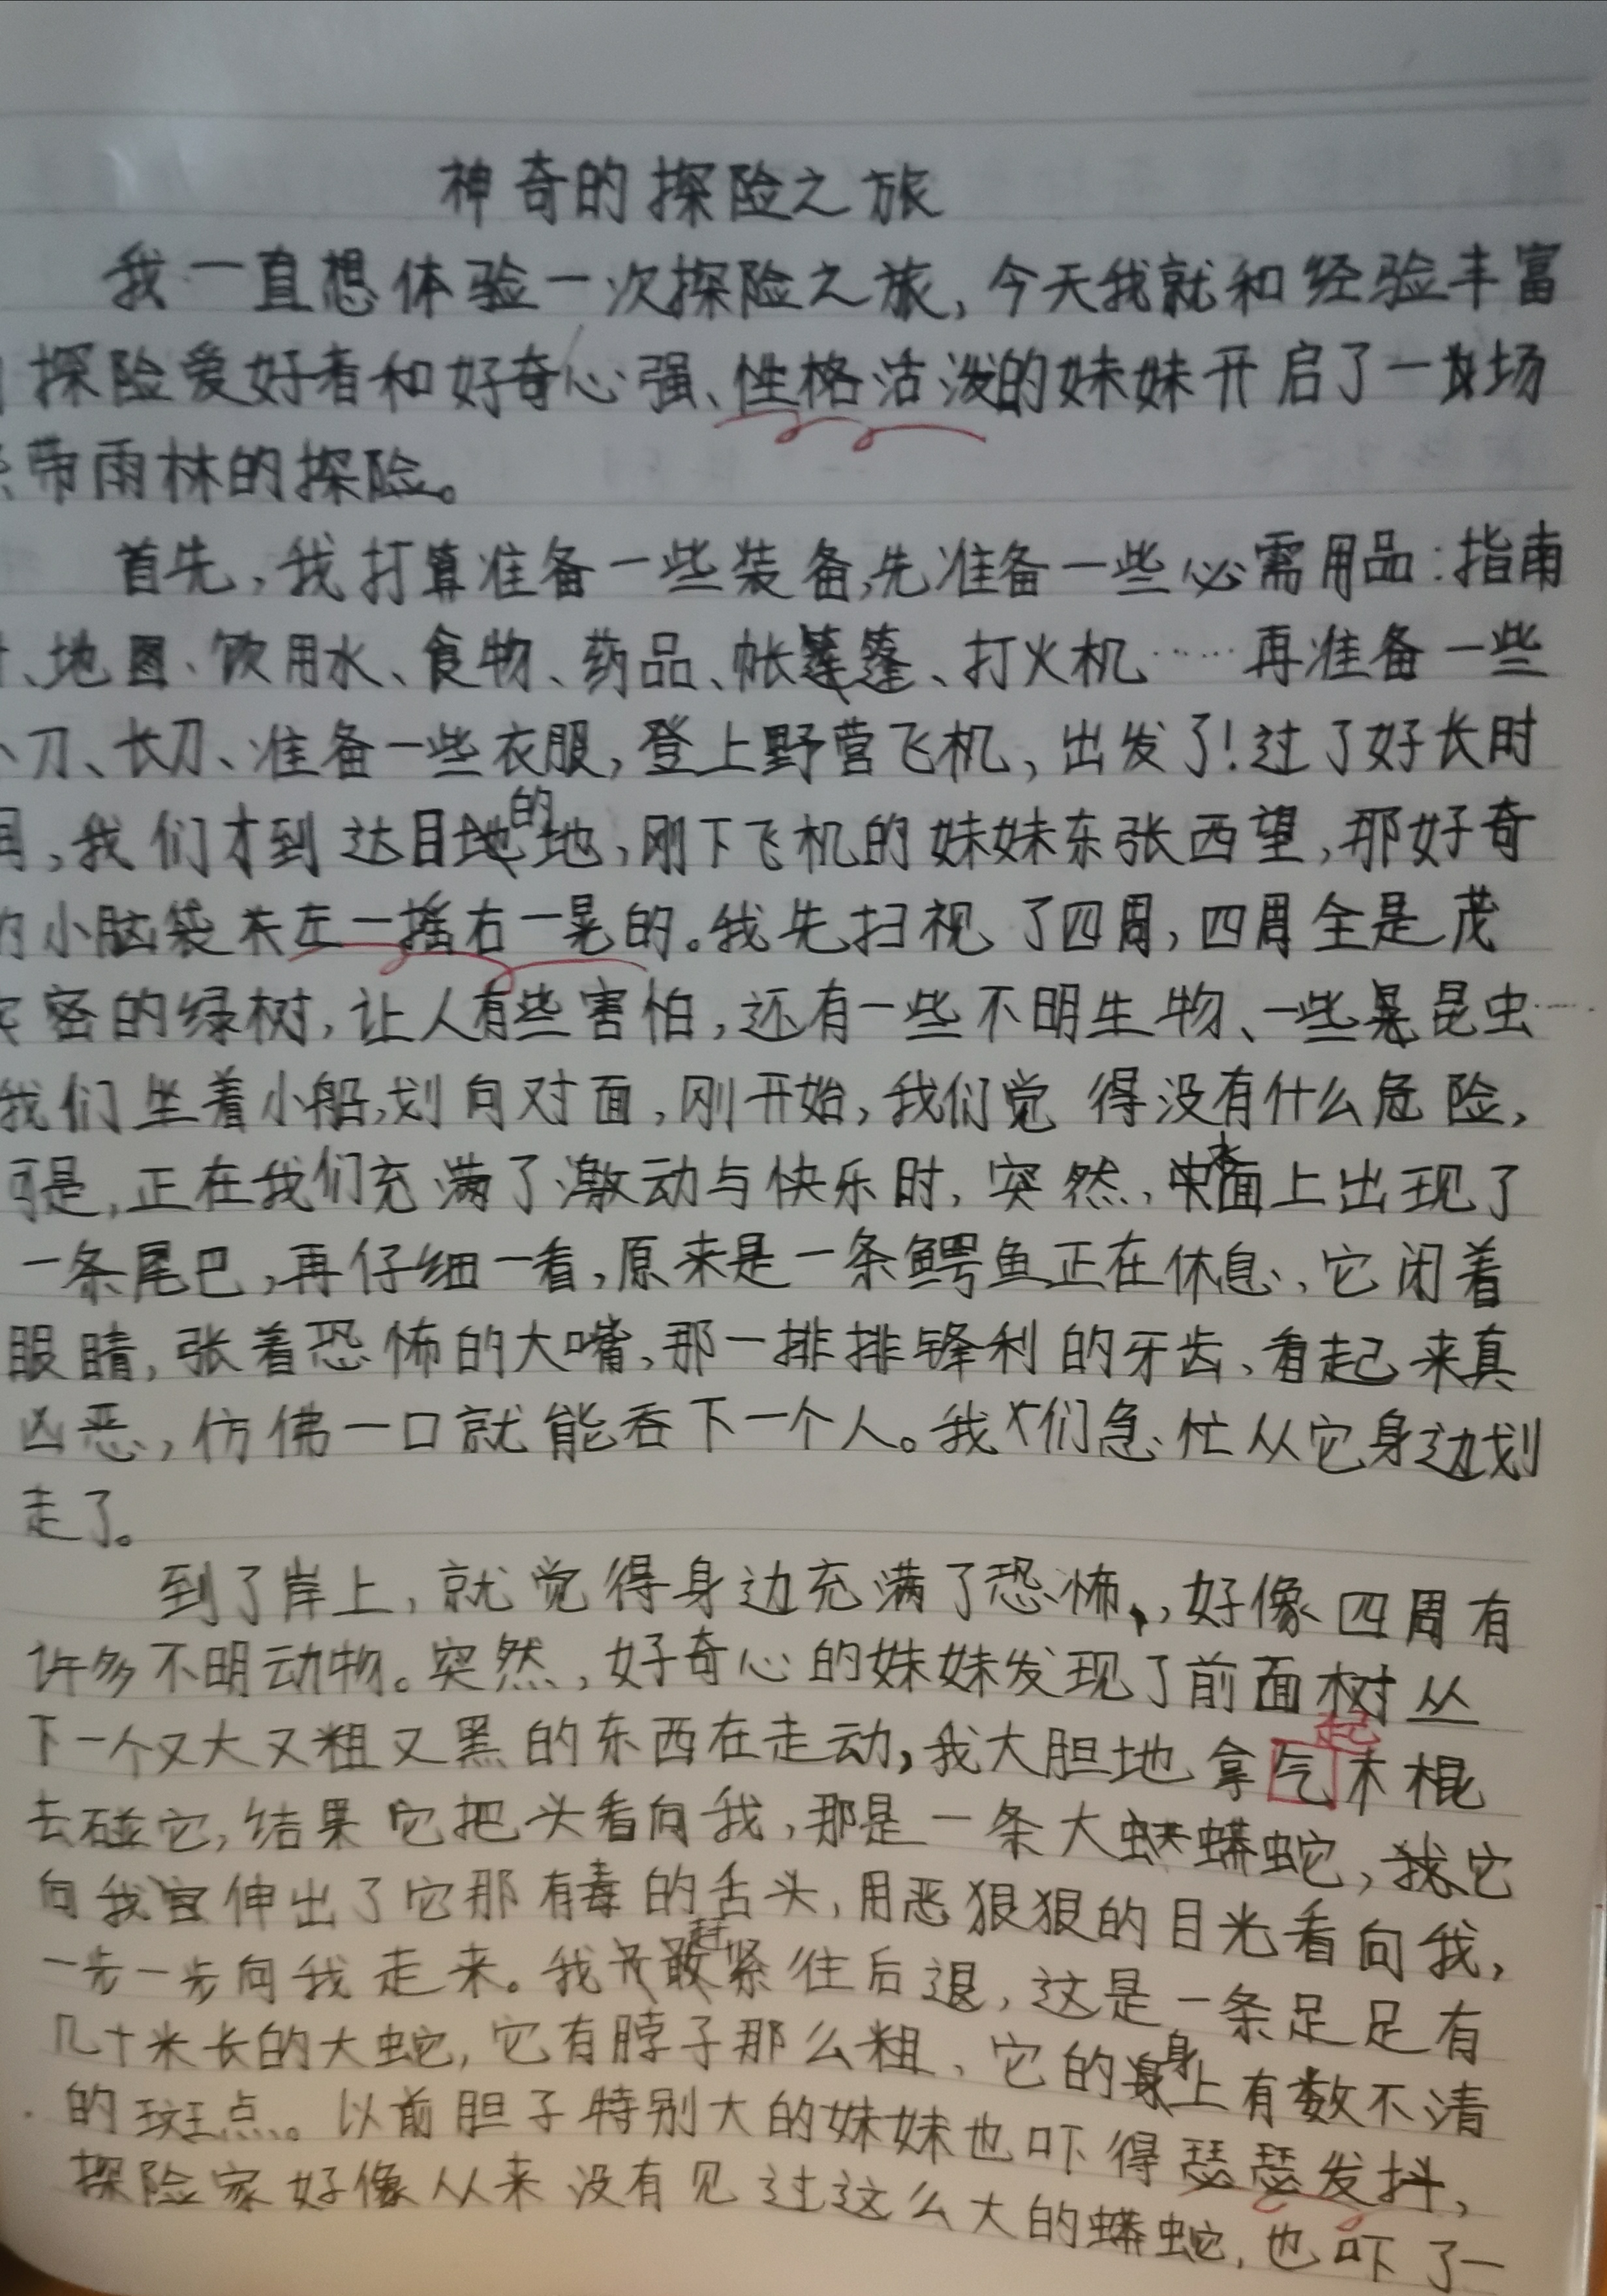 神奇的探险之旅
我一直想体验一次探险之旅，今天我就和经验丰富
探险爱好者和好奇心强、性格活泼的妹妹开启了一场
带雨林的探险。
首先，我打算准备一些装备，先准备一些必需用品：指南
、地图、饮用水、食物、药品、帐篷、打火机……再准备一些
刀、长刀、准备一些衣服，登上野营飞机，出发了！过了好长时
，我们才到达目的地，刚下飞机的妹妹东张西望，那好奇
的小脑袋左一摇右一晃的。我先扫视了四周，四周全是茂
密的绿树，让人有些害怕，还有一些不明生物、一些昆虫……
我们坐着小船，划向对面，刚开始，我们觉得没有什么危险，
可是，正在我们充满了激动与快乐时，突然，水面上出现了
一条尾巴，再仔细一看，原来是一条鳄鱼正在休息，它闭着
眼睛，张着恐怖的大嘴，那一排排锋利的牙齿，看起来真
凶恶，仿佛一口就能吞下一个人。我们急忙从它身边划
走了。
到了岸上，就觉得身边充满了恐怖，好像四周有
许多不明动物。突然，好奇心的妹妹发现了前面树丛
起
下一个又大又粗又黑的东西在走动，我大胆地拿气木棍
去碰它，结果它把头看向我，那是一条大蟒蛇，它
向我伸出了它那有毒的舌头，用恶狠狠的目光看向我，
一步一步向我走来。我赶紧往后退，这是一条足足有
几十米长的大蛇，它有脖子那么粗、它的身上有数不清
的斑点。以前胆子特别大的妹妹也吓得瑟瑟发抖，
探险家好像从来没有见过这么大的蟒蛇，也吓了一